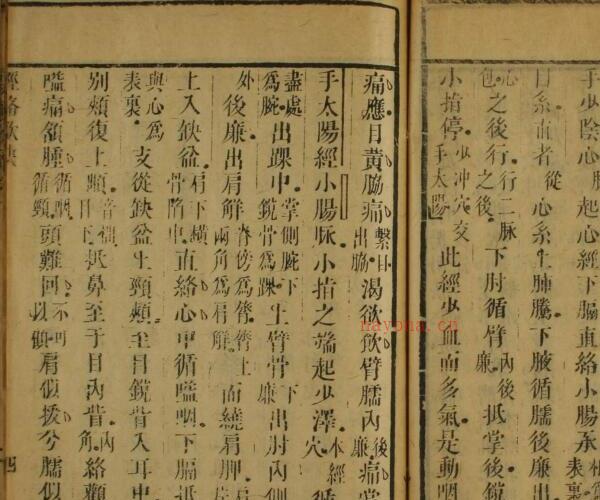 手少陰心脈起心經下膈直絡小腸承相為表裏
目系直者從心系上肺騰下腋循臑後廉出
心包之後行行二脈之後下肘循臂內後廉抵掌後銳
小指停少冲穴交手太陽此經少血而多氣是動咽
痛應目黃脇痛繫目出脇渴欲飲臂臑內後廉痛掌
手太陽經小腸脉小指之端起少澤本經穴循
盡處為腕出踝中掌側腕下銳骨為踝上臂骨下廉出肘內
外後廉出肩解脊傍為膂膂上兩角為肩解而繞肩胛
上入缺盆肩下橫骨陷中直絡心中循嗌咽下膈抵
與心為表裏支從缺盆上頸頰至目銳眥入耳中
別頰復上䪼音拙目下抵鼻至于目內眥內角絡顴
嗌痛頷腫循咽循頸頭難回不可以顧肩似拔兮臑似
經絡歌訣 四
nayona.cn